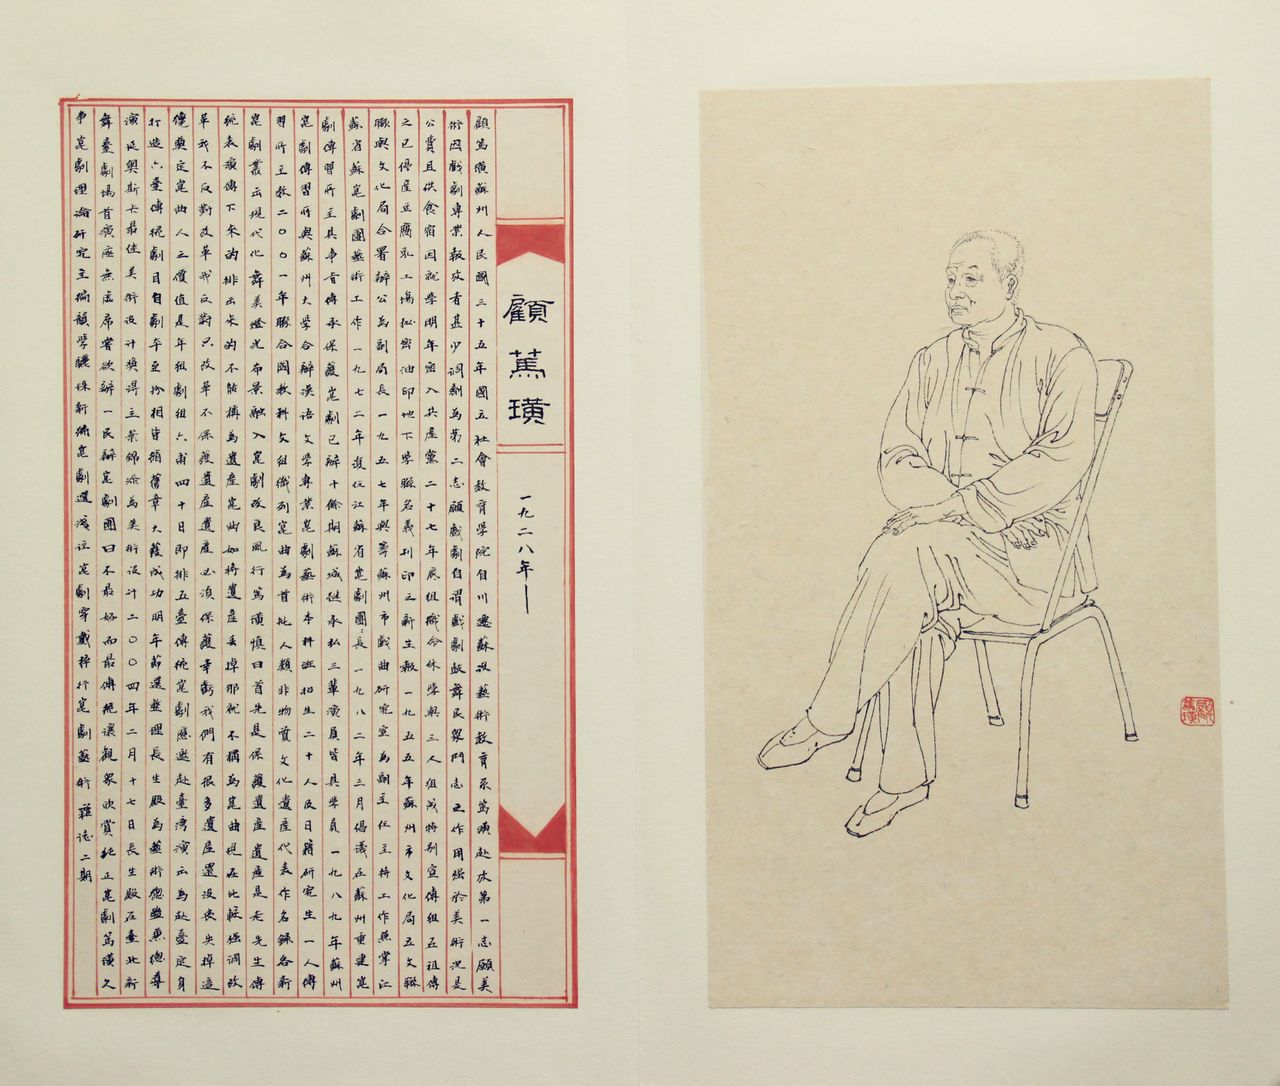 顧篤璜
一九二八年—
顧篤璜蘇州人民國三十五年國立社會教育學院自川遷蘇設藝術教育系篤璜赴攷第一志願美
術因戲劇專業報攷者甚少調劑為第二志願戲劇自謂戲劇鼓舞民眾鬥志之作用強於美術況是
公費且供食宿因就學明年密入共產黨二十七年底組織命休學與三人組成特別宣傳組五祖傳
之已停產豆腐乳工場秘密油印地下學聯名義刊印之新生報一九五五年蘇州市文化局立文聯
聯與文化局合署辦公為副局長一九五七年與籌蘇州市戲曲研究室為副主任主持工作兼掌江
蘇省蘇崑劇團藝術工作一九七二年復任江蘇省崑劇團:長一九八二年三月倡議在蘇州重建崑
劇傳習所主其事旨傳承保護崑劇已辦十餘期蘇城继承弘三輩演員皆其學員一九八九年蘇州
崑劇傳習所與蘇州大學合辦漢語文學專業崑劇藝術本科班招生二十人及日籍研究生一人傳
習所主教二〇〇一年聯合國教科文組織列崑曲為首批人類非物質文化遺產代表作名錄各新
崑劇叢出現代化舞美燈光布景融入崑劇改良風行篤璜慎曰首先是保護遺產遺產是老先生傳
統表演傳下來的排出來的不能稱為遺產崑曲如將遺產丟掉那就不稱為崑曲現在比較強調改
革我不反對改革我反對只改革不保護遺產遺產必須保護幸虧我們有很多遺產還沒喪失掉這
僅奠定崑曲人之價值是年組劇組六甫四十日即排五臺傳統崑劇應邀赴臺灣演出為赴臺定身
打造六臺傳統劇目自劇本至扮相皆循舊章大獲成功明年節選整理長生殿為藝術總監兼總導
演延奧斯卡最佳美術設計獎得主葉錦添為美術設計二〇〇四年二月十七日長生殿在臺北新
舞臺劇場首演座無虛席嘗欲辦一民辦崑劇團曰不最好而最傳統讓觀眾欣賞純正崑劇篤璜久
事崑劇理論研究主編韻學驪珠新編崑劇選淺註崑劇穿戴梓行崑劇藝術雜志二期
顧篤璜